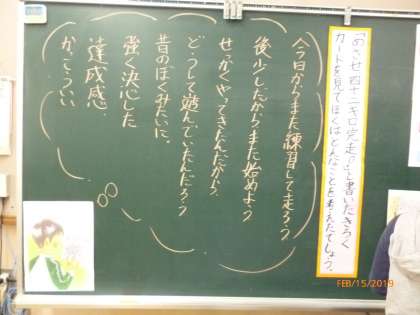 「めざせ四十二キロ完走！」と書いたきろく
カードを見てぼくはどんなことを考えたでしょう。
今日からまた練習して走ろう
後少しだからまた始めよう
せっかくやってきたんだから
どうして遊んでいたんだろう
昔のぼくみたいに
強く決心した
達成感
かっこいい
FEB/15/2019